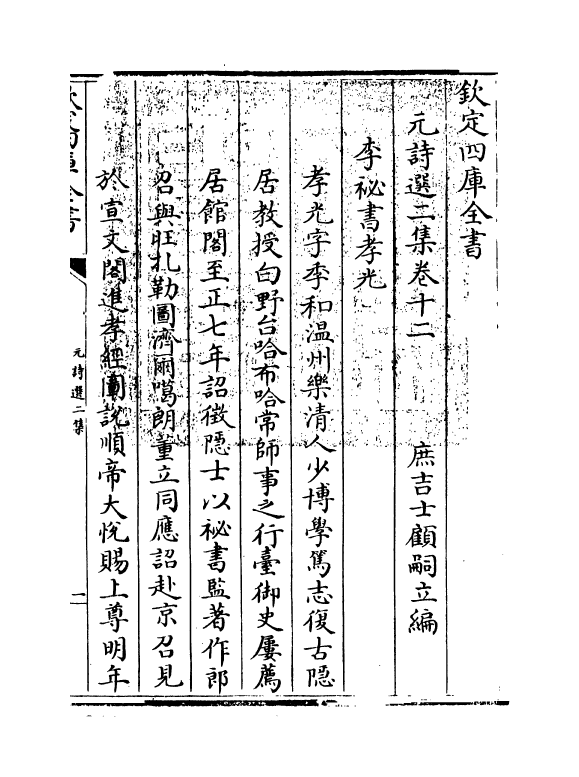 欽定四庫全書
元詩選二集卷十二　庶吉士顧嗣立編
李祕書孝光
孝光字季和温州樂清人少博學篤志復古隱
居教授白野台哈布哈常師事之行臺御史屢薦
居館閣至正七年詔徵隱士以祕書監著作郎
召與旺扎勒圖濟爾噶朗董立同應詔赴京召見
於宣文閣進孝經圖説順帝大悦賜上尊明年
元詩選二集